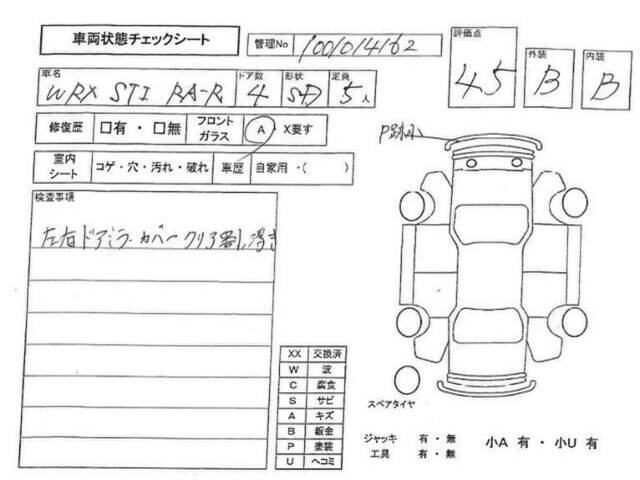 車両状態チェックシート
管理No 1001014162
評価点 45
外装 B
内装 B
車名 WRX STI RA-R
ドア数 4
形状 SD
定員 5人
修復歴 口有・口無
フロントガラス A・X要す
室内シート コゲ・穴・汚れ・破れ
車歴 自家用・( )
検査事項
左右ドアミラーカバークリア剥し浮き
P跡小
XX 交換済
W 波
C 腐食
S サビ
A キズ
B 鈑金
P 塗装
U ヘコミ
スペアタイヤ
ジャッキ 有・無
工具 有・無
小A 有・小U 有